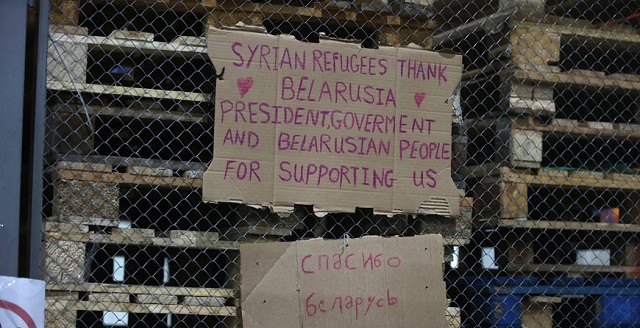 SYRIAN REFUGEES THANK
BELARUSIA
PRESIDENT,GOVERMENT
AND BELARUSIAN PEOPLE
FOR SUPPORTING US
спасибо
беларусь